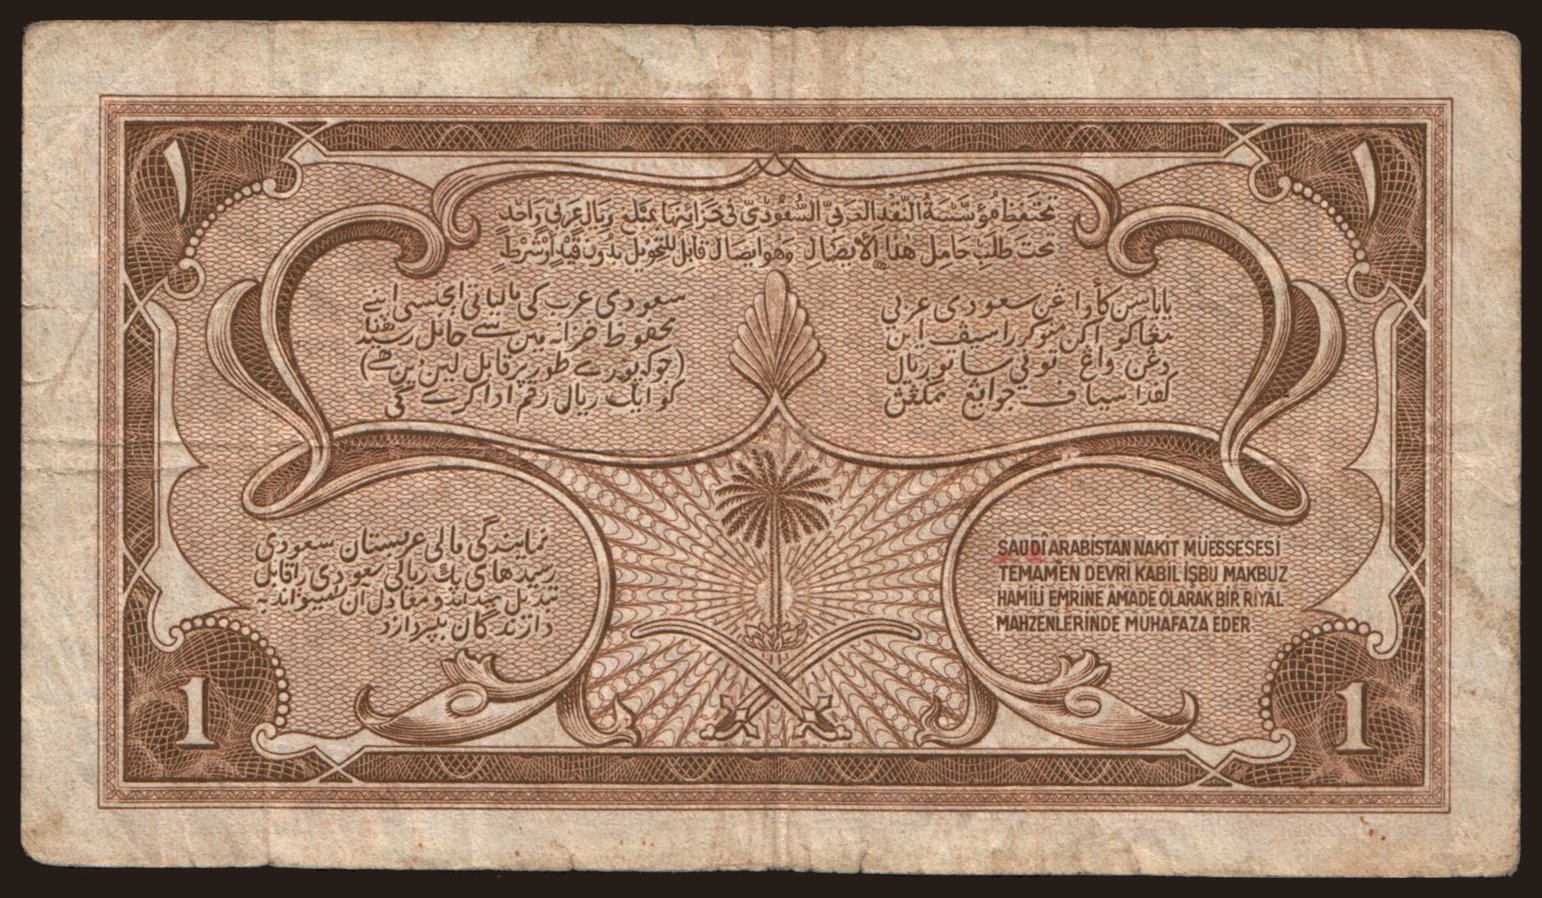 ١
١
تحتفظ مؤسسة النقد العربي السعودي في خزائنها بمبلغ ريال عربي واحد
تحت طلب حامل هذا الايصال وهو ايصال قابل للتحويل بدون قيد او شرط
باياسن كأواڠن سعودي عربي
مڠاكو اكن
دڠن واڠ ساتو ريال
كفدا سياف
سعودی عرب کی مالیاتی ایجنسی اپنے
محفوظ خزانہ میں سے حامل رسید ھٰذا
(جو کہ پورے طور پر قابل لین دین ھے)
کو ایک ریال رقم ادا کرے گی
نمایندگی مالی عربستان سعودی
رسیدهای یک ریالی سعودی را قابل
تبدیل میداند و معادل آن را میتواند به
دارندگان بپردازد
SAUDİ ARABİSTAN NAKİT MÜESSESESİ
TEMAMEN DEVRİ KABİL İŞBU MAKBUZ
HAMİLİ EMRİNE AMADE OLARAK BİR RİYAL
MAHZENLERİNDE MUHAFAZA EDER
1
1